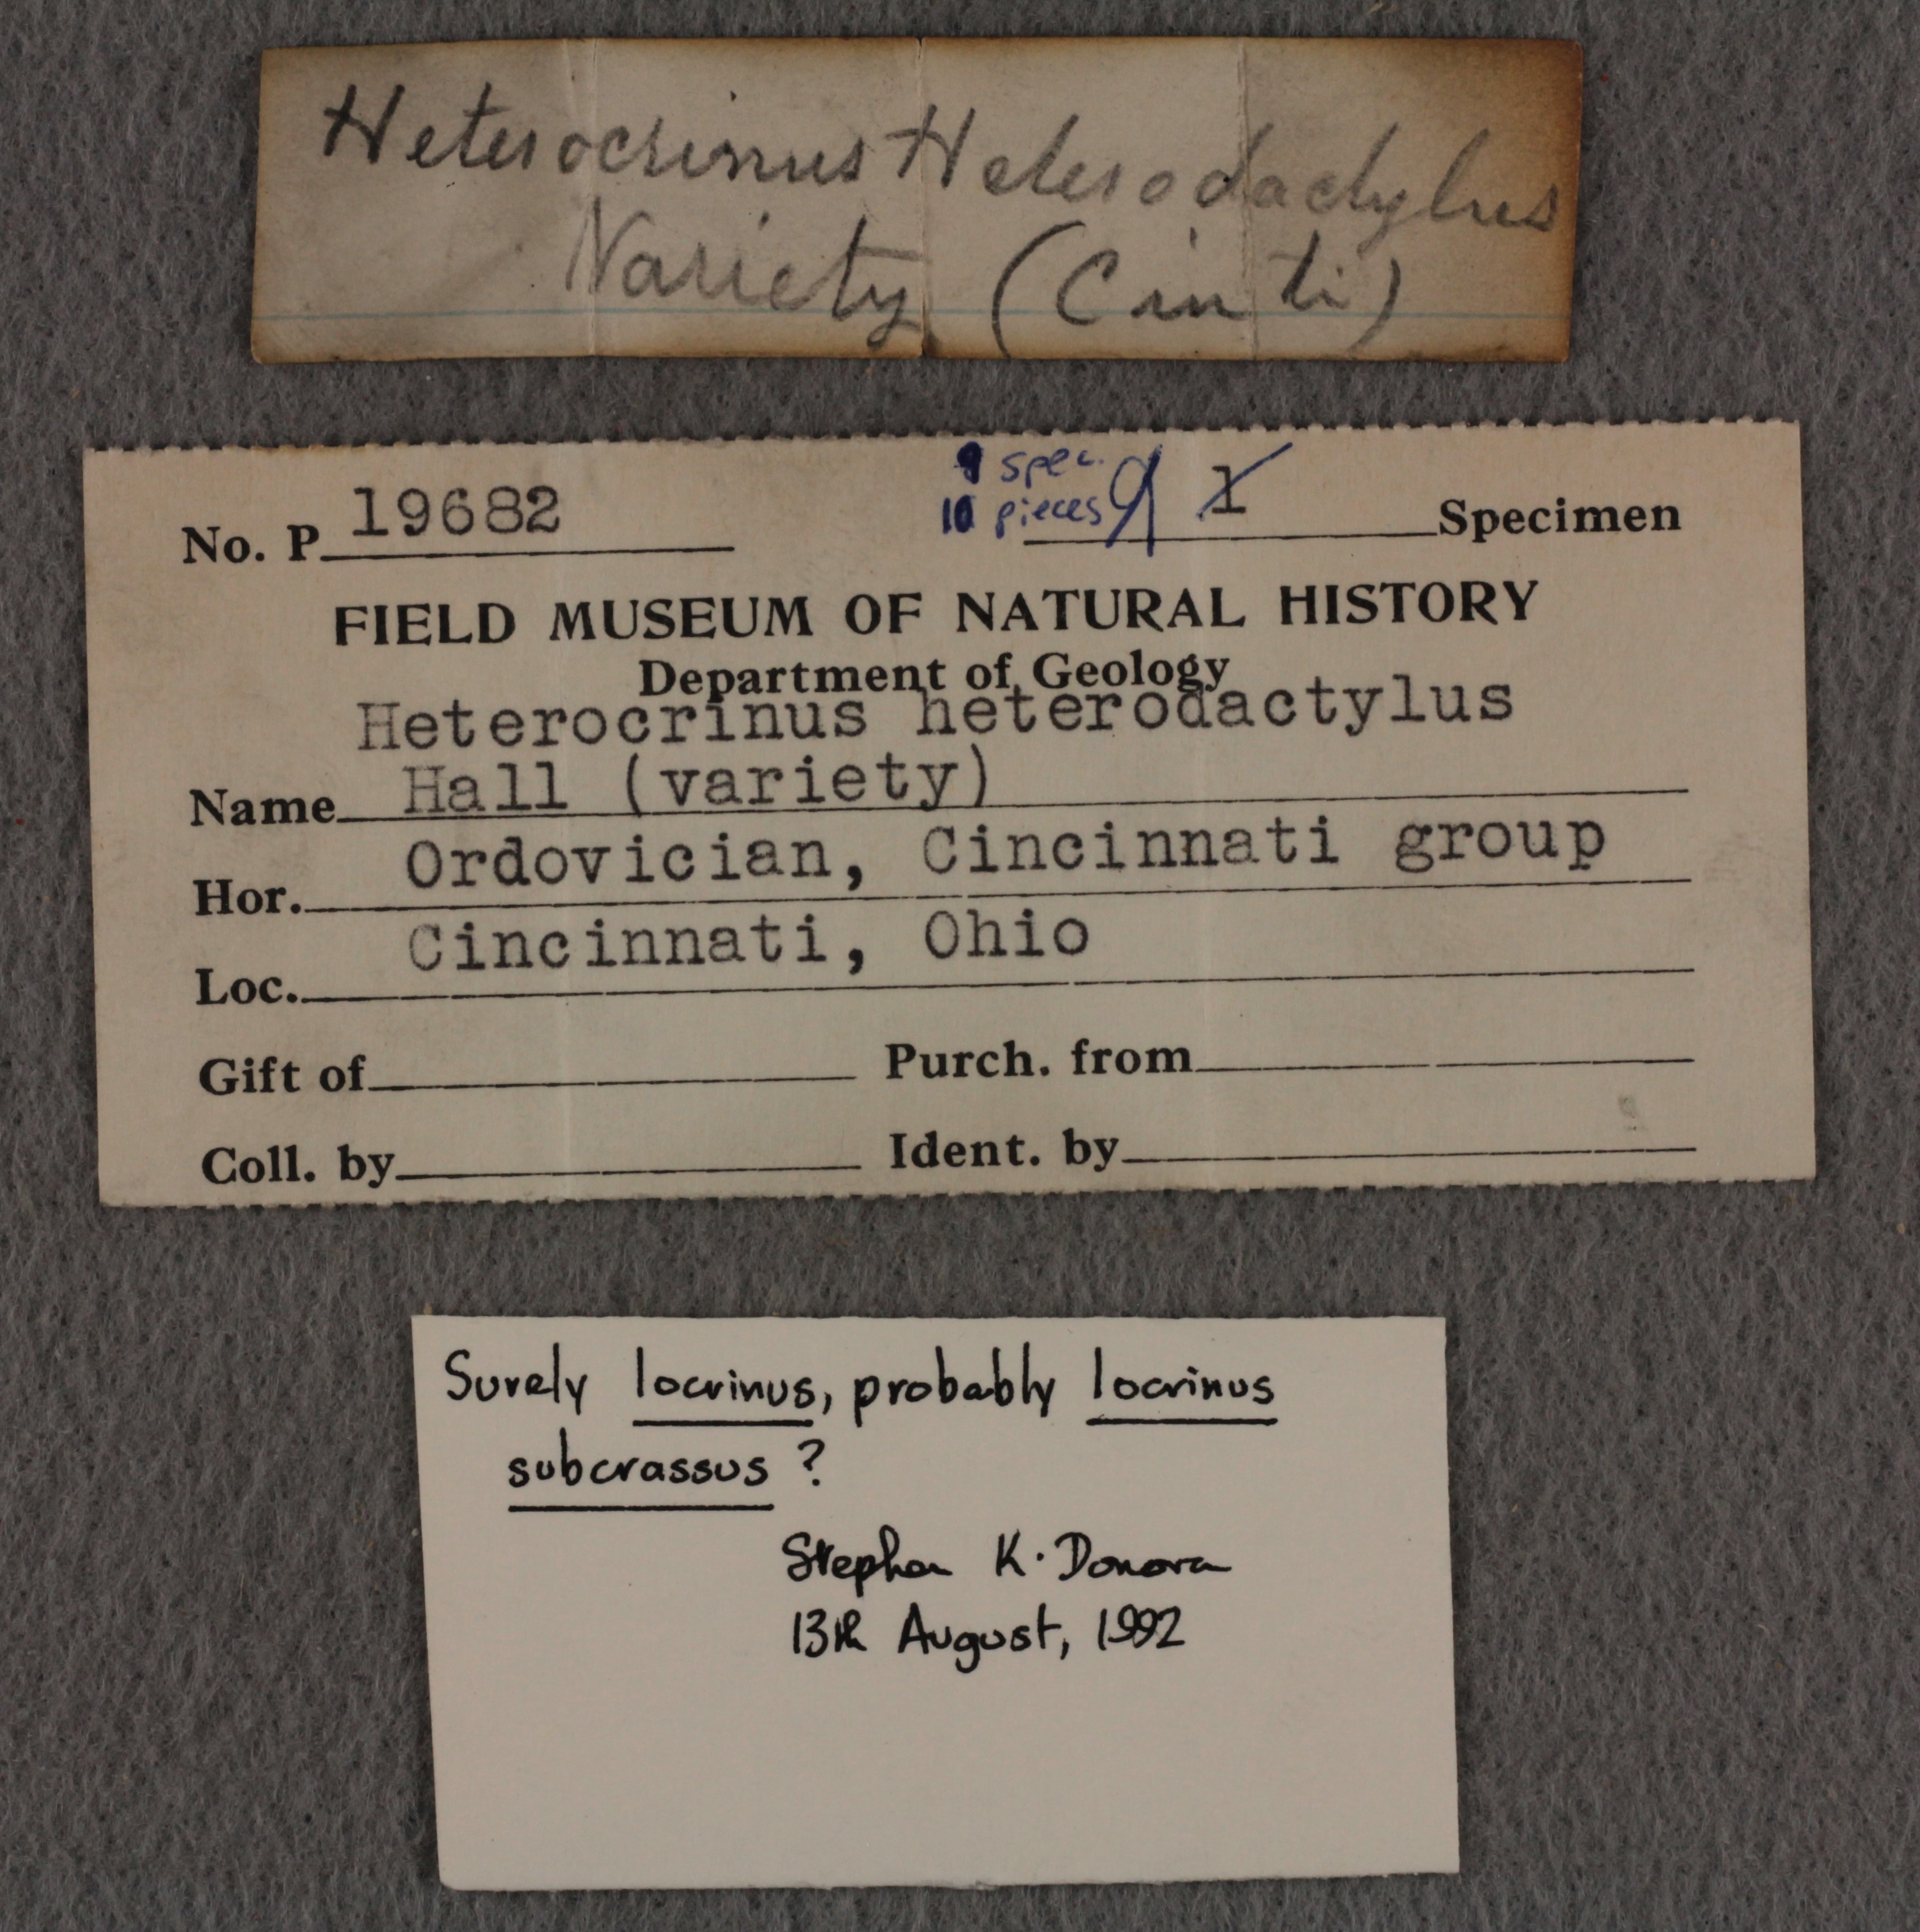 Heterocrinus Heterodactylus
Variety (Cinti)
9 spec.
10 pieces 9 1 Specimen
No. P 19682
FIELD MUSEUM OF NATURAL HISTORY
Department of Geology
Heterocrinus heterodactylus
Name Hall (variety)
Hor. Ordovician, Cincinnati group
Loc. Cincinnati, Ohio
Gift of Purch. from
Coll. by Ident. by
Surely Iocrinus, probably Iocrinus
subcrassus ?
Stephen K. Donovan
13th August, 1992